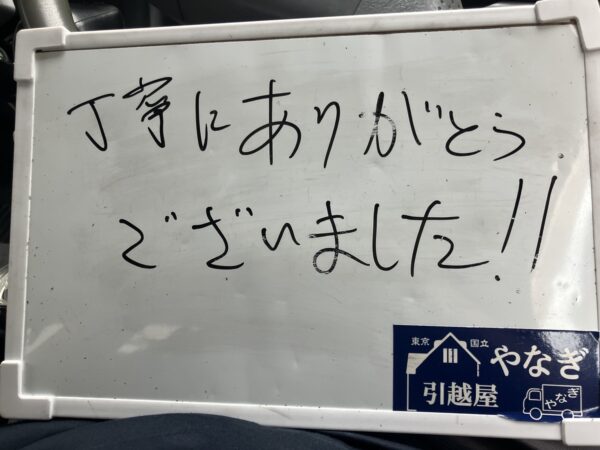 丁寧にありがとう
でございました!!
東京 国立
やなぎ
引越屋
やなぎ